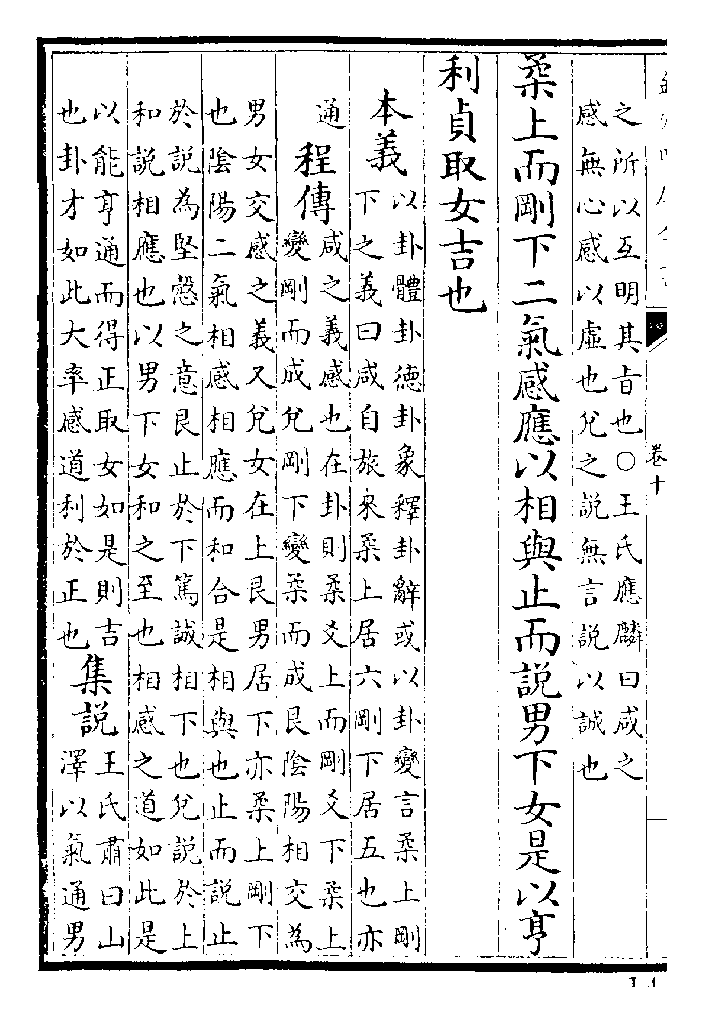 卷十
之所以互明其旨也○王氏應麟曰咸之
感無心感以虛也兌之説無言説以誠也
柔上而剛下二氣感應以相與止而説男下女是以亨
利貞取女吉也
本義
以卦體卦德卦象釋卦辭或以卦變言柔上剛
下之義曰咸自旅來柔上居六剛下居五也亦
通
程傳
咸之義感也在卦則柔爻上而剛爻下柔上
變剛而成兌剛下變柔而成艮陰陽相交為
男女交感之義又兌女在上艮男居下亦柔上剛下
也陰陽二氣相感相應而和合是相與也止而説止
於説為堅慤之意艮止於下篤誠相下也兌説於上
和説相應也以男下女和之至也相感之道如此是
以能亨通而得正取女如是則吉
也卦才如此大率感道利於正也
集説
王氏肅曰山
澤以氣通男